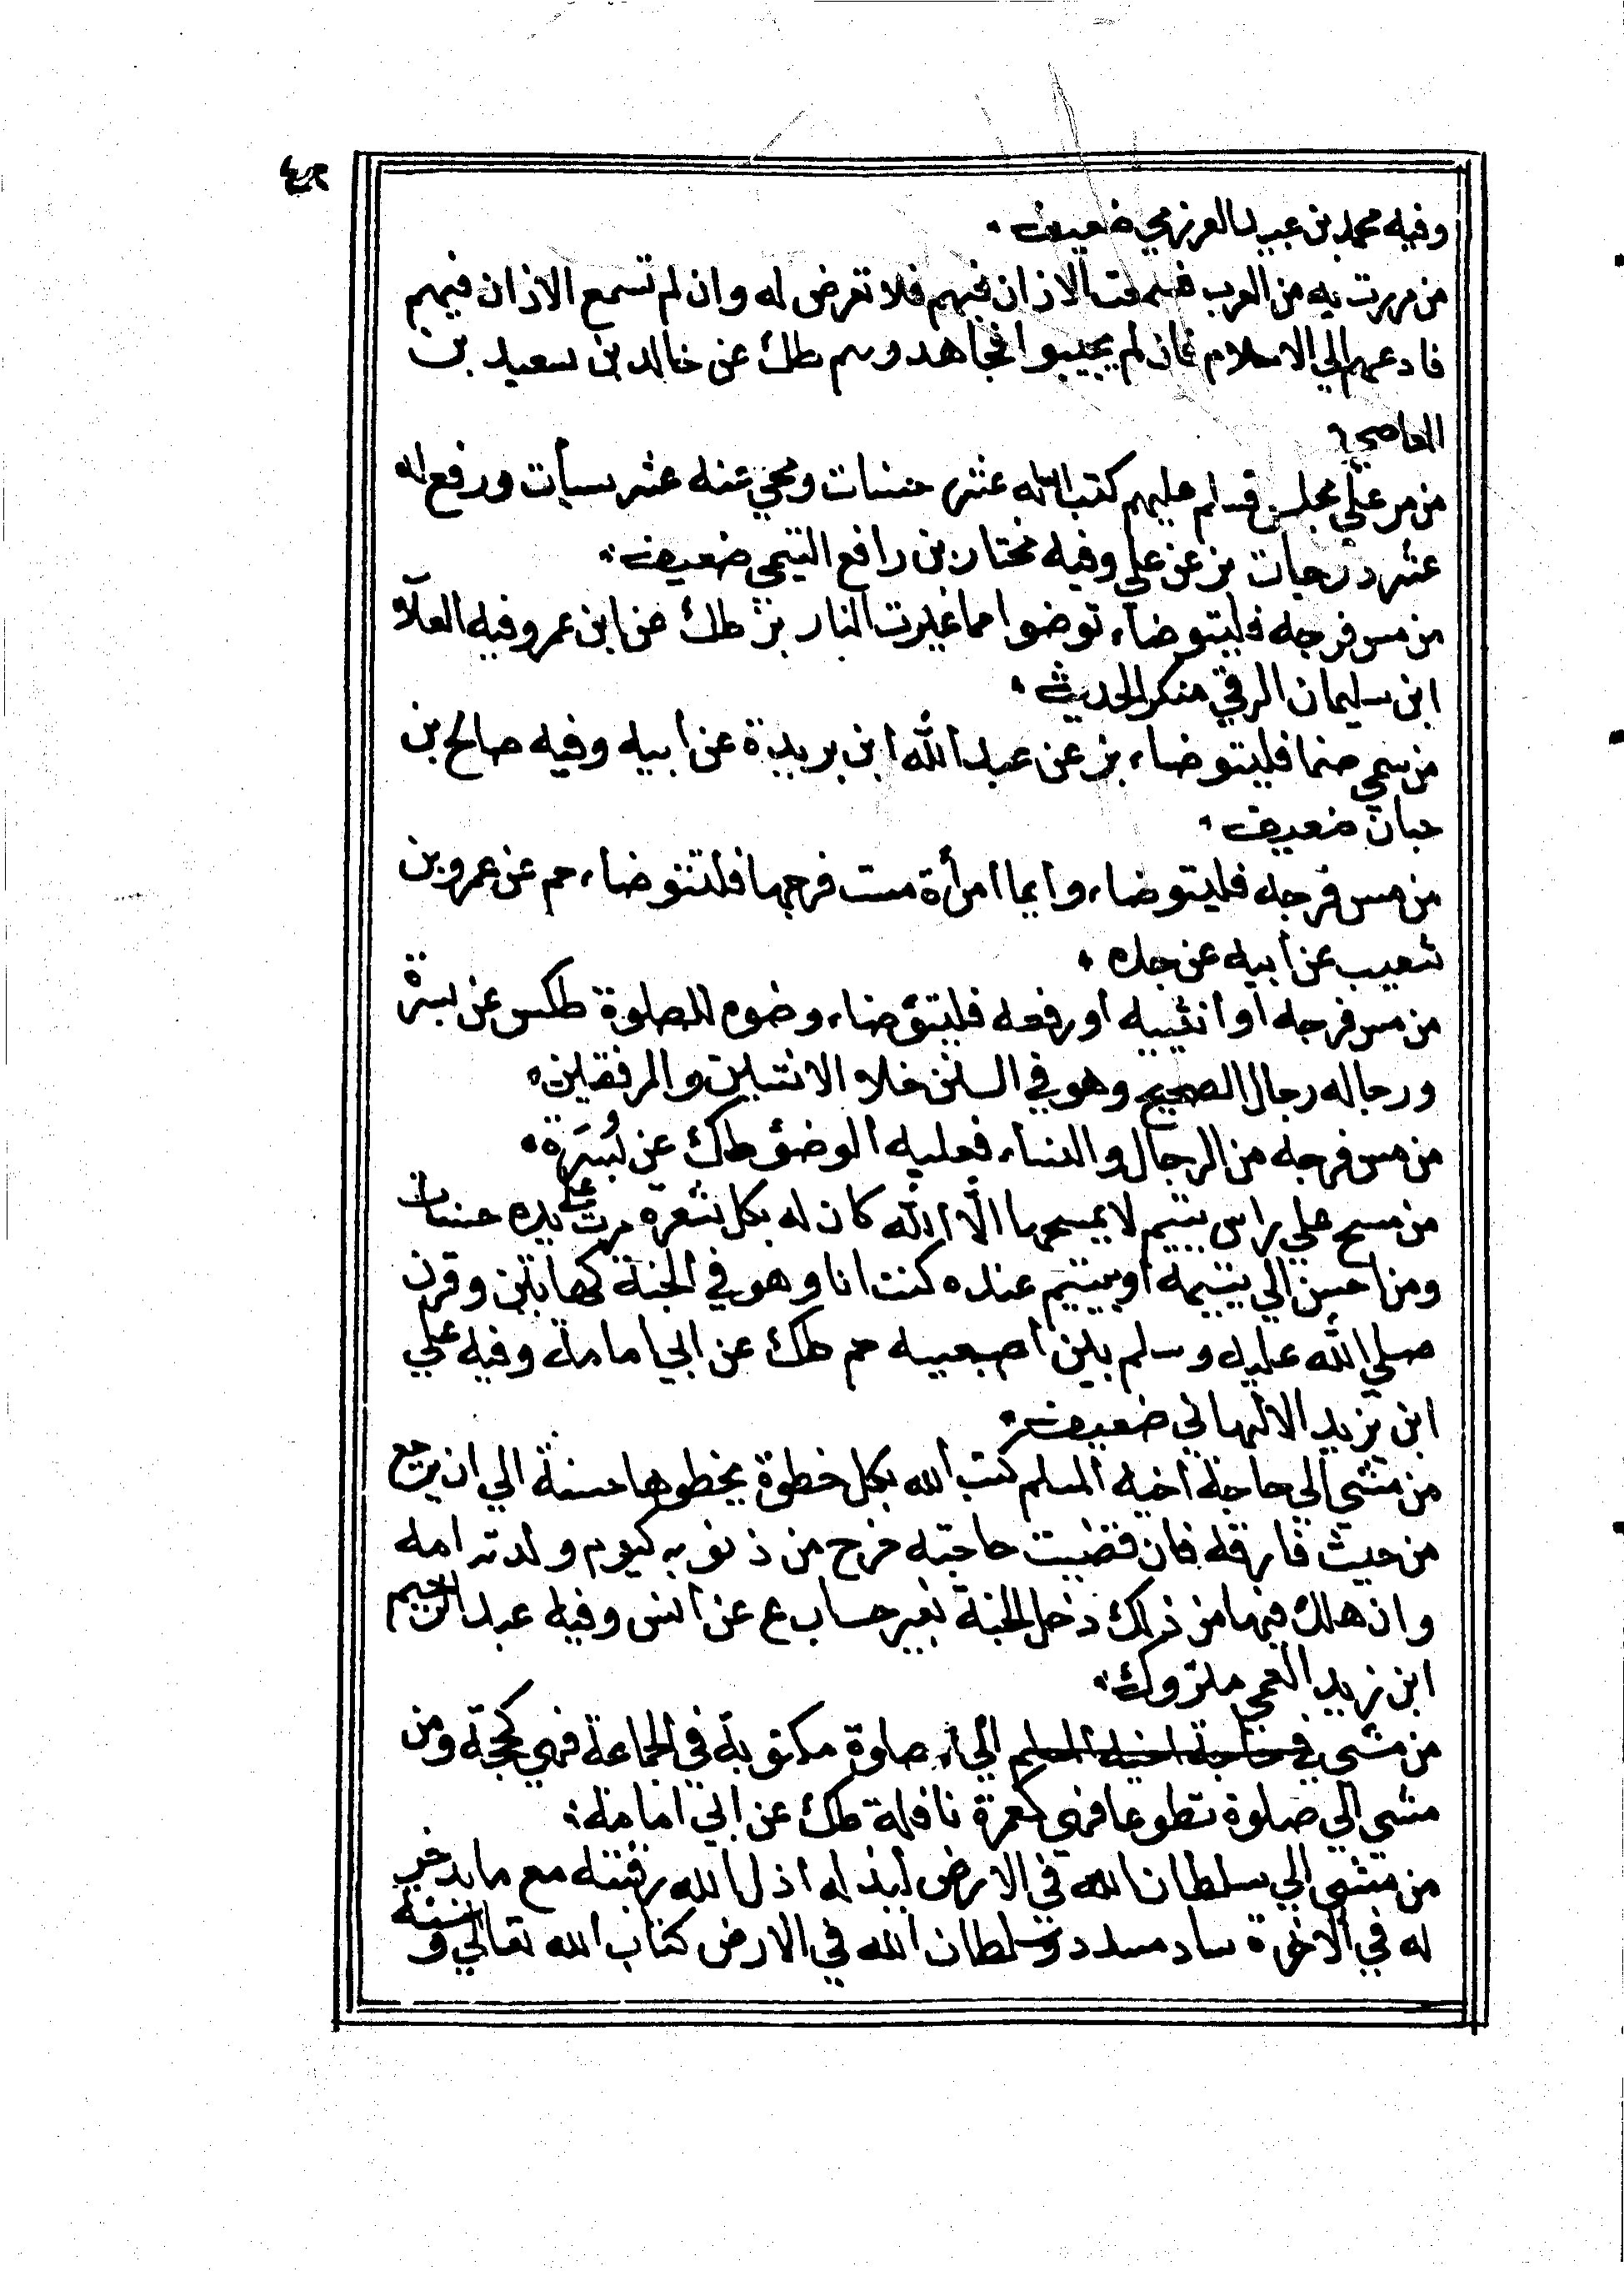 وفيه محمد بن عبيد العرزمي ضعيف
من مررت به من العرب فسمعت الاذان فيهم فلا تعرض له وان لم تسمع الاذان فيهم
فادعهم الي الاسلام فان لم يجيبوا فجاهدوهم طك عن خالد بن سعيد بن
العاصي
من مر علي مجلس فسلم عليهم كتب الله عشر حسنات ومحي عنه عشر سيأت ورفع له
عشر درجات بز عن علي وفيه مختار بن رافع التيمي ضعيف
من مس فرجه فليتوضاء توضوا مما غيرت النار بز طك عن ابن عمر وفيه العلآء
ابن سليمان الرقي منكر الحديث
من مس صنما فليتوضاء بز عن عبد الله ابن بريدة عن ابيه وفيه صالح بن
حبان ضعيف
من مس فرجه فليتوضاء وايما امرأة مست فرجها فلتتوضاء حم عن عمرو بن
شعيب عن أبيه عن جده
من مس فرجه أو أنثييه أو رفغه فليتوضاء وضوء للصلوة طكس عن بسرة
ورجاله رجال الصحيح وهو في السنن خلا الانثيين والمرفقين
من مس فرجه من الرجال والنساء فعليه الوضؤ طك عن بُسَرَة
من مسح علي راس يتيم لا يمسحها الّا الله كان له بكل شعرة مرت عليها يده حسنات
ومن احسن الي يتيمه أو يتيم عنده كنت انا وهو في الجنة كهاتين وقرن
صلي الله عليه وسلم بين أصبعيه حم طك عن ابي امامة وفيه علي
ابن يزيد الالهاني ضعيف
من مشي الي حاجة أخيه المسلم كتب الله بكل خطوة يخطوها حسنة الي ان يرجع
من حيث فارقه فان قضيت حاجته خرج من ذنوبه كيوم ولدته امه
وان هلك فيما من ذلك دخل الجنة بغير حساب ع عن انس وفيه عبد الرحيم
ابن زيد العمي متروك
من مشي في حاجة اخيه المسلم الي صلوة مكتوبة في الجماعة فهي كحجة ومن
مشي الي صلوة تطوعا فهي كعمرة نافلة طك عن ابي امامة
من مشي الي سلطان الله في الارض ليذله اذل الله رقبته مع ما يدخر
له في الاخرة ساد مسدد وسلطان الله في الارض كتاب الله تعالي وسنة